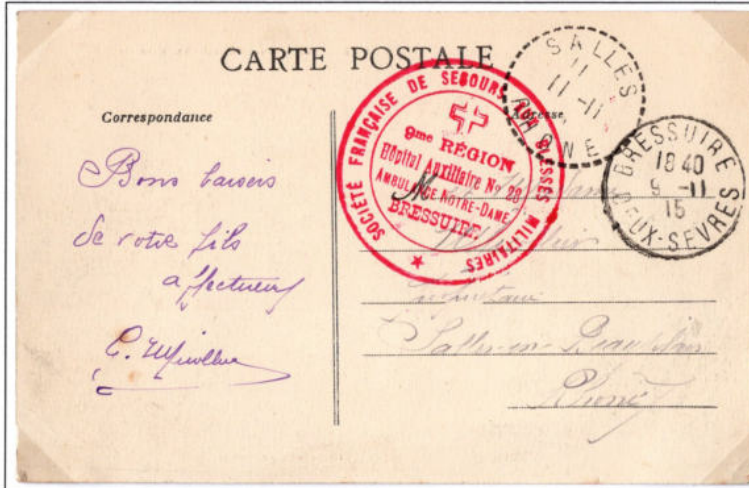 CARTE POSTALE
Correspondance
Adresse
Bons baisers
de votre fils
affectueux
SOCIÉTÉ FRANÇAISE DE SECOURS AUX BLESSÉS MILITAIRES
9me RÉGION
Hôpital Auxiliaire No 28
AMBULANCE NOTRE-DAME
BRESSUIRE
SALLES
11
11-11
RHONE
BRESSUIRE
18 40
9 -11
15
DEUX-SEVRES
M
Salles-en-Beaujolais
Rhône